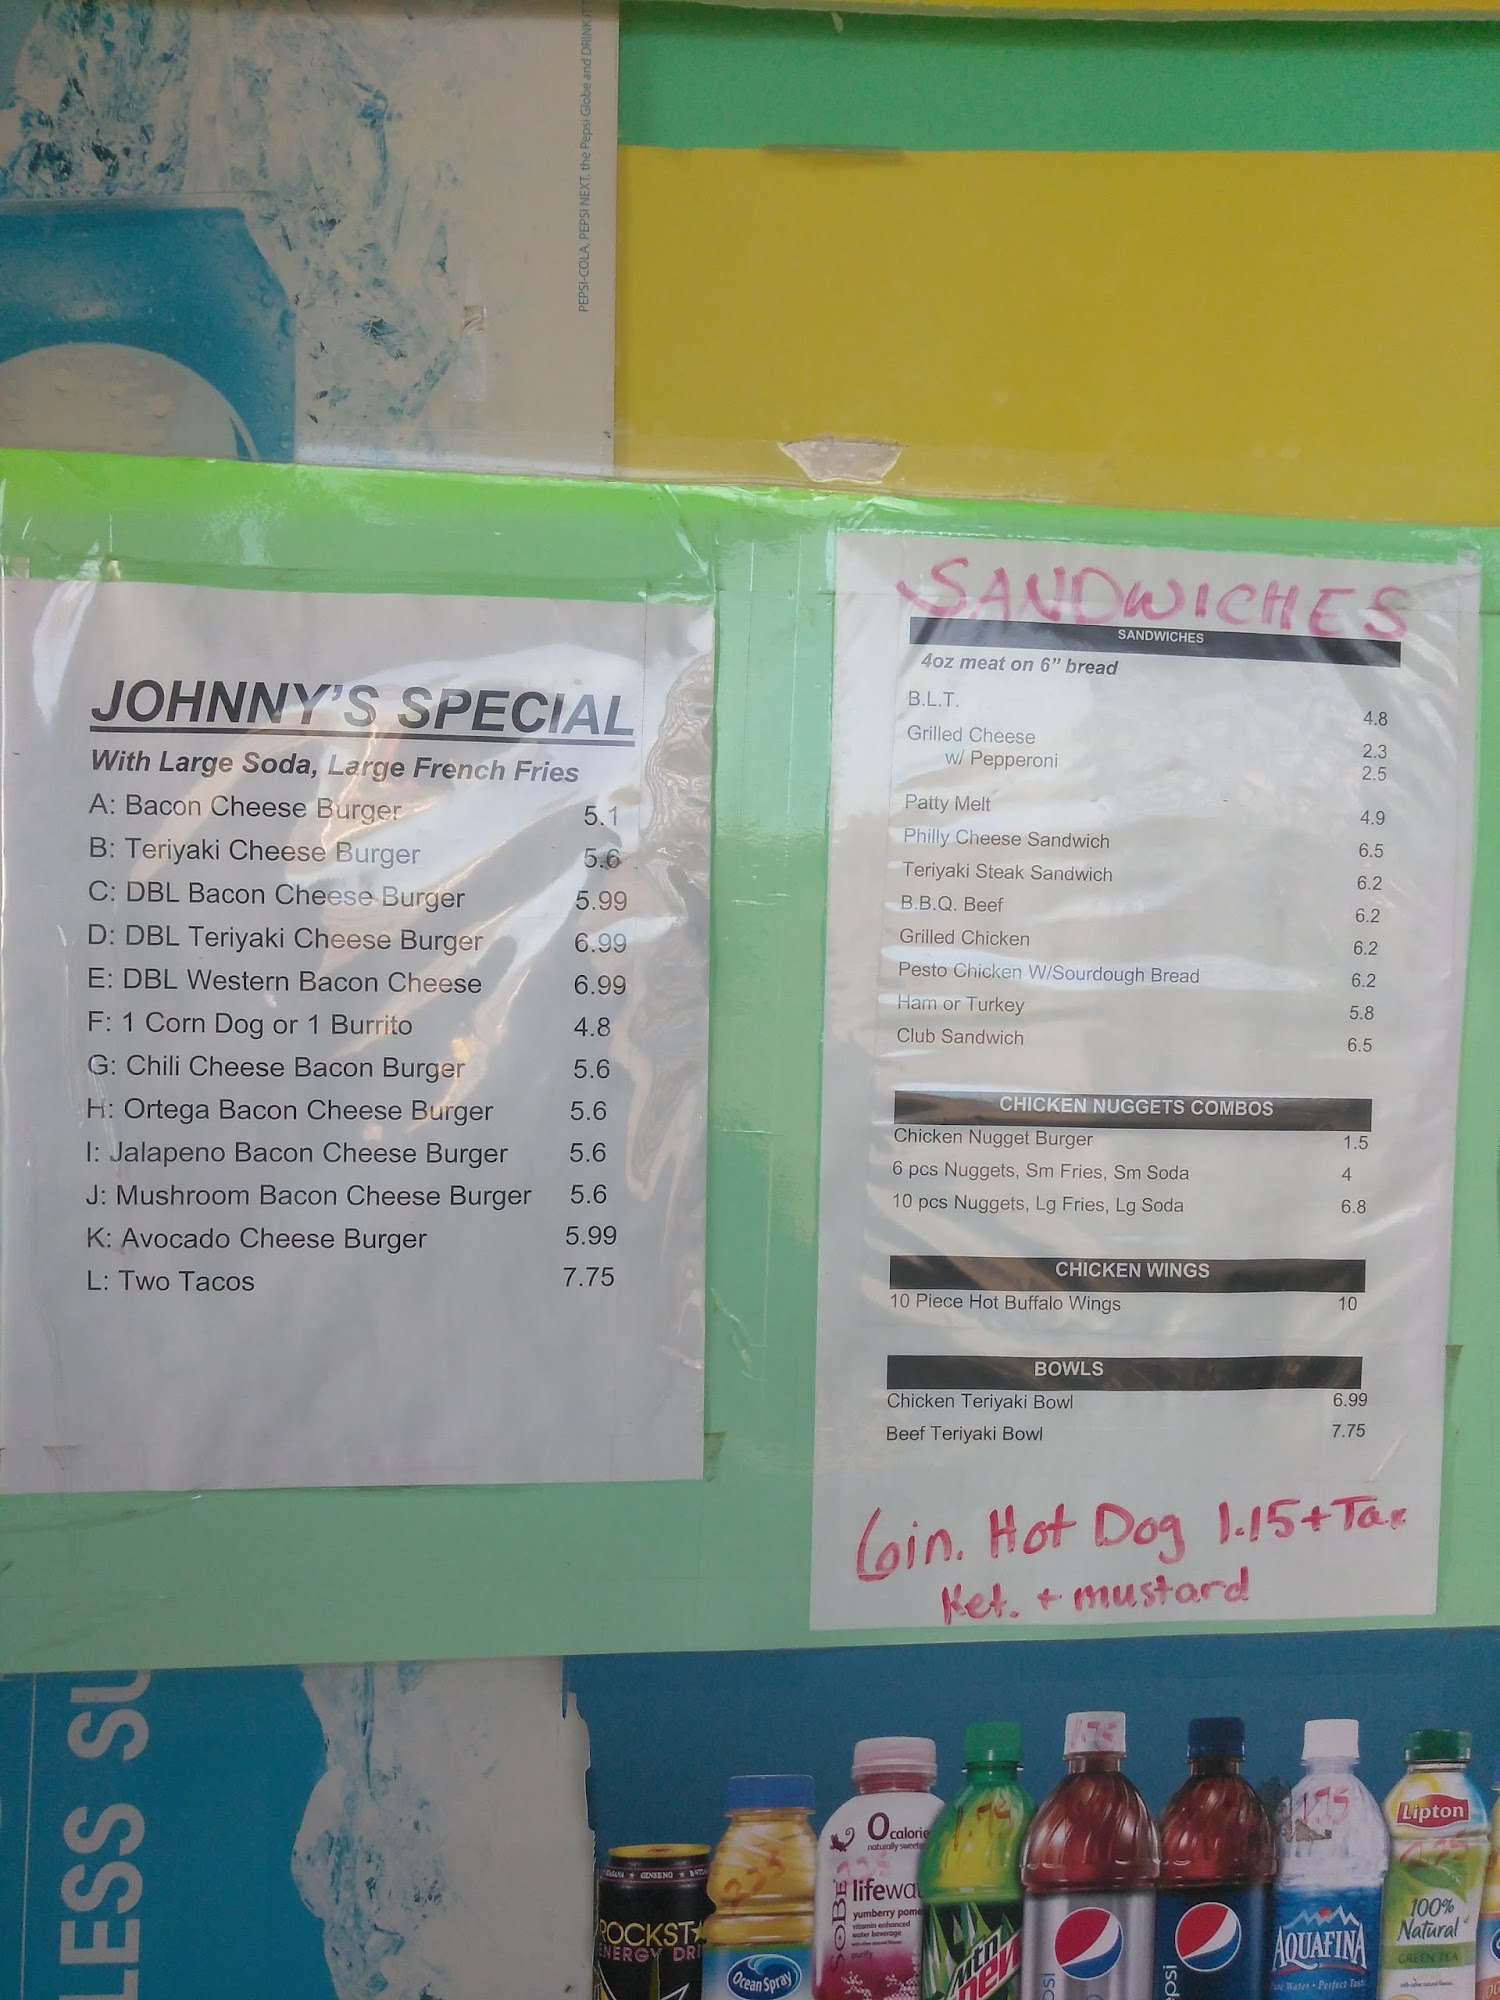 PEPSI-COLA, PEPSI NEXT, the Pepsi Globe and DRINK IT
JOHNNY'S SPECIAL
With Large Soda, Large French Fries
A: Bacon Cheese Burger 5.1
B: Teriyaki Cheese Burger 5.6
C: DBL Bacon Cheese Burger 5.99
D: DBL Teriyaki Cheese Burger 6.99
E: DBL Western Bacon Cheese 6.99
F: 1 Corn Dog or 1 Burrito 4.8
G: Chili Cheese Bacon Burger 5.6
H: Ortega Bacon Cheese Burger 5.6
I: Jalapeno Bacon Cheese Burger 5.6
J: Mushroom Bacon Cheese Burger 5.6
K: Avocado Cheese Burger 5.99
L: Two Tacos 7.75
SANDWICHES
SANDWICHES
4oz meat on 6” bread
B.L.T. 4.8
Grilled Cheese 2.3
w/ Pepperoni 2.5
Patty Melt 4.9
Philly Cheese Sandwich 6.5
Teriyaki Steak Sandwich 6.2
B.B.Q. Beef 6.2
Grilled Chicken 6.2
Pesto Chicken W/Sourdough Bread 6.2
Ham or Turkey 5.8
Club Sandwich 6.5
CHICKEN NUGGETS COMBOS
Chicken Nugget Burger 1.5
6 pcs Nuggets, Sm Fries, Sm Soda 4
10 pcs Nuggets, Lg Fries, Lg Soda 6.8
CHICKEN WINGS
10 Piece Hot Buffalo Wings 10
BOWLS
Chicken Teriyaki Bowl 6.99
Beef Teriyaki Bowl 7.75
6in. Hot Dog 1.15+Tax
Ket. + mustard
LESS SU
GINSENG
ROCKSTA
ENERGY DRI
2.25
Ocean Spray
0 calorie
naturally sweete
SOBE
lifewat
yumberry pome
vitamin enhanced
water beverage
purify
1.75
Mtn
Dew
1.75
psi
epsi
1.75
AQUAFINA
Pure Water • Perfect Taste
Lipton
100%
Natural
GREEN TEA